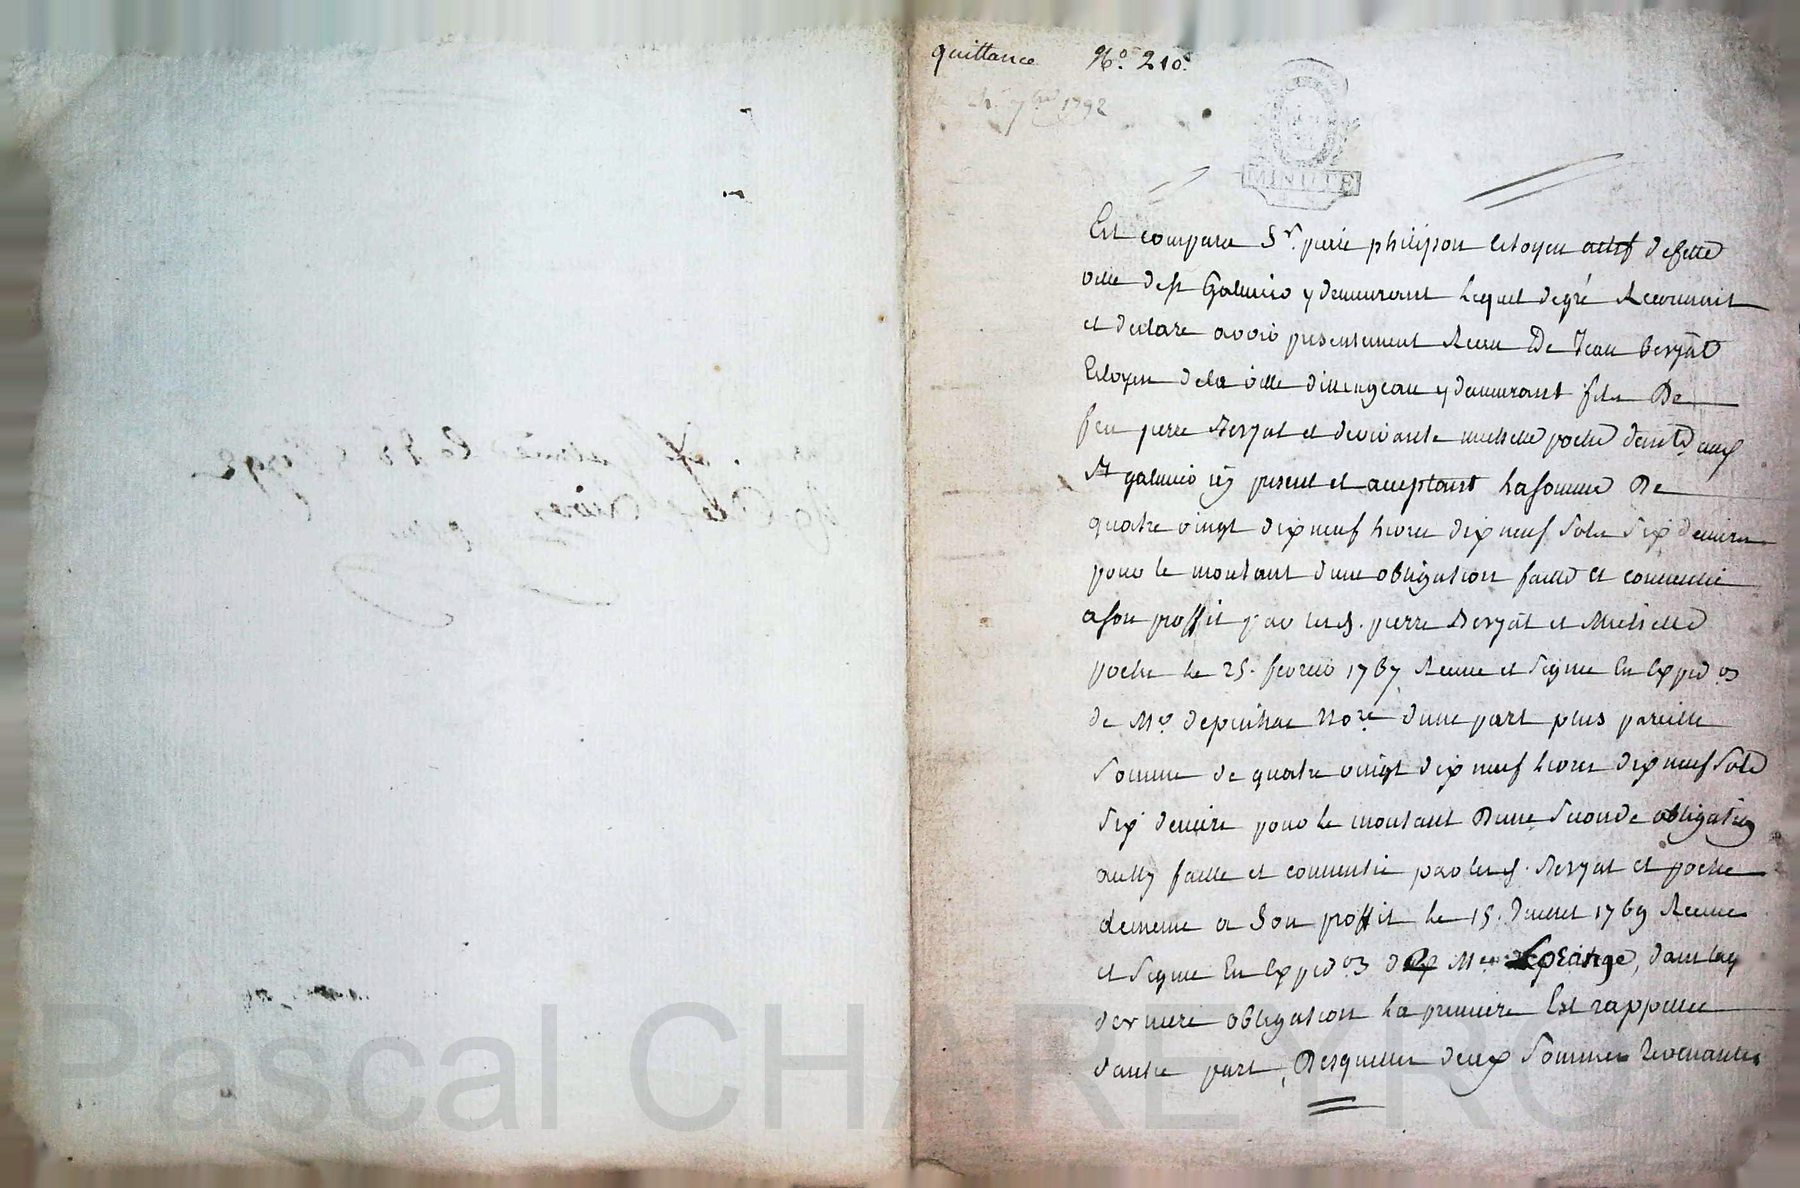 quittance N.º 210.
7bre 1792
MINUTE
Est comparu Sr. pierre philipon Citoyen actif de cette
ville de st Galmier y demeurant Lequel de gré Reconnoit
et declare avoir presentement Receu De Jean Beryat
Citoyen de la ville dissengeau y demeurant fils De
feu pierre Beryat et de vivante michelle poche
St galmier icy present et acceptant La somme De
quatre vingt dix neuf Livres dix neuf Sols Six deniers
pour le montant d'une obligation faitte et consentie
a son proffit par lesd. pierre Beryat et Michelle
poche le 25. fevrier 1767 Receue et Signée En Expedon
de Me depeichac Nore d'une part plus pareille
Somme de quatre vingt dix neuf Livres dix neuf Sols
Six deniers pour le montant D'une Seconde obligation
aussy faitte et consentie par lesd. Beryat et poche
de meme a Son proffit le 15. Juillet 1769 Receue
et Signée En Expedon de Me
derniere obligation La premiere Est rappellée
d'autre part, Desquelles deux Sommes Revenantes
Pascal CHAREYRO